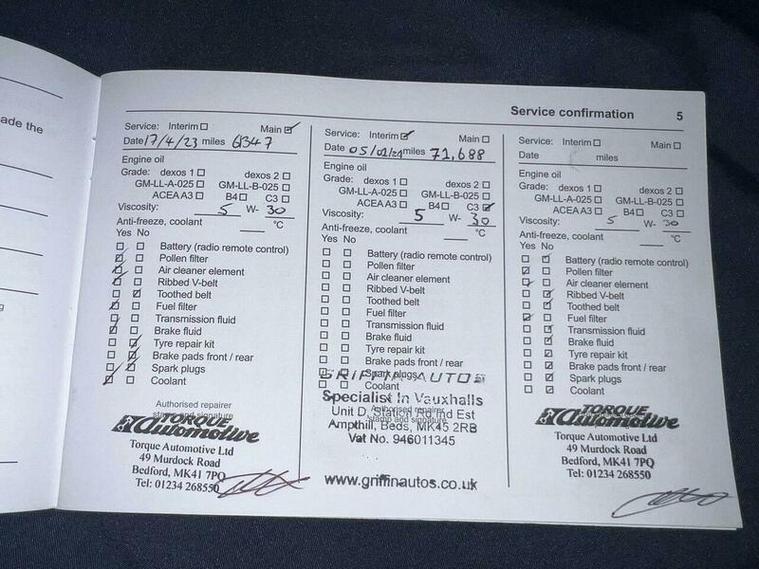 ade the
Service confirmation 5
Service: Interim Main
Date 17/4/23 miles 61347
Engine oil
Grade: dexos 1 dexos 2
GM-LL-A-025 GM-LL-B-025
ACEA A3 B4 C3
Viscosity: 5 W- 30
Anti-freeze, coolant °C
Yes No
Battery (radio remote control)
Pollen filter
Air cleaner element
Ribbed V-belt
Toothed belt
Fuel filter
Transmission fluid
Brake fluid
Tyre repair kit
Brake pads front / rear
Spark plugs
Coolant
Authorised repairer
stamp and signature
TORQUE
Automotive
Torque Automotive Ltd
49 Murdock Road
Bedford, MK41 7PQ
Tel: 01234 268550
Service: Interim Main
Date 05/01/24 miles 71,688
Engine oil
Grade: dexos 1 dexos 2
GM-LL-A-025 GM-LL-B-025
ACEA A3 B4 C3
Viscosity: 5 W- 30
Anti-freeze, coolant °C
Yes No
Battery (radio remote control)
Pollen filter
Air cleaner element
Ribbed V-belt
Toothed belt
Fuel filter
Transmission fluid
Brake fluid
Tyre repair kit
Brake pads front / rear
Spark plugs
GRIFFIN AUTOS
Coolant
Specialist In Vauxhalls
Authorised repairer
Unit D, Station Rd Ind Est
stamp and signature
Ampthill, Beds, MK45 2RB
Vat No. 946011345
www.griffinautos.co.uk
Service: Interim Main
Date miles
Engine oil
Grade: dexos 1 dexos 2
GM-LL-A-025 GM-LL-B-025
ACEA A3 B4 C3
Viscosity: 5 W- 30
Anti-freeze, coolant °C
Yes No
Battery (radio remote control)
Pollen filter
Air cleaner element
Ribbed V-belt
Toothed belt
Fuel filter
Transmission fluid
Brake fluid
Tyre repair kit
Brake pads front / rear
Spark plugs
Coolant
TORQUE
Automotive
Torque Automotive Ltd
49 Murdock Road
Bedford, MK41 7PQ
Tel: 01234 268550